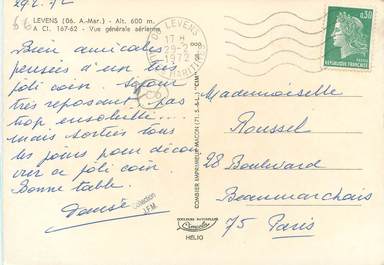 29.2.72
66
LEVENS (06. A.-Mar.) - Alt. 600 m.
A Cl. 167-62 - Vue générale aérienne
Bien amicales
pensées d'un très
joli coin. Séjour
très reposant, pas
trop ensoleillé...
mais sorties tous
les jours pour décou
vrir ce joli coin.
Bonne table.
Denise
LEVENS
17 H
29-2
1972
0,30
REPUBLIQUE FRANÇAISE
Mademoiselle
Roussel
28 Boulevard
Beaumarchais
75 Paris
COMBIER IMPRIMEUR MACON (71. S.-&-L.) "CIM"
COULEURS NATURELLES
Cimcolor
HELIO
Collection
J.F.M.